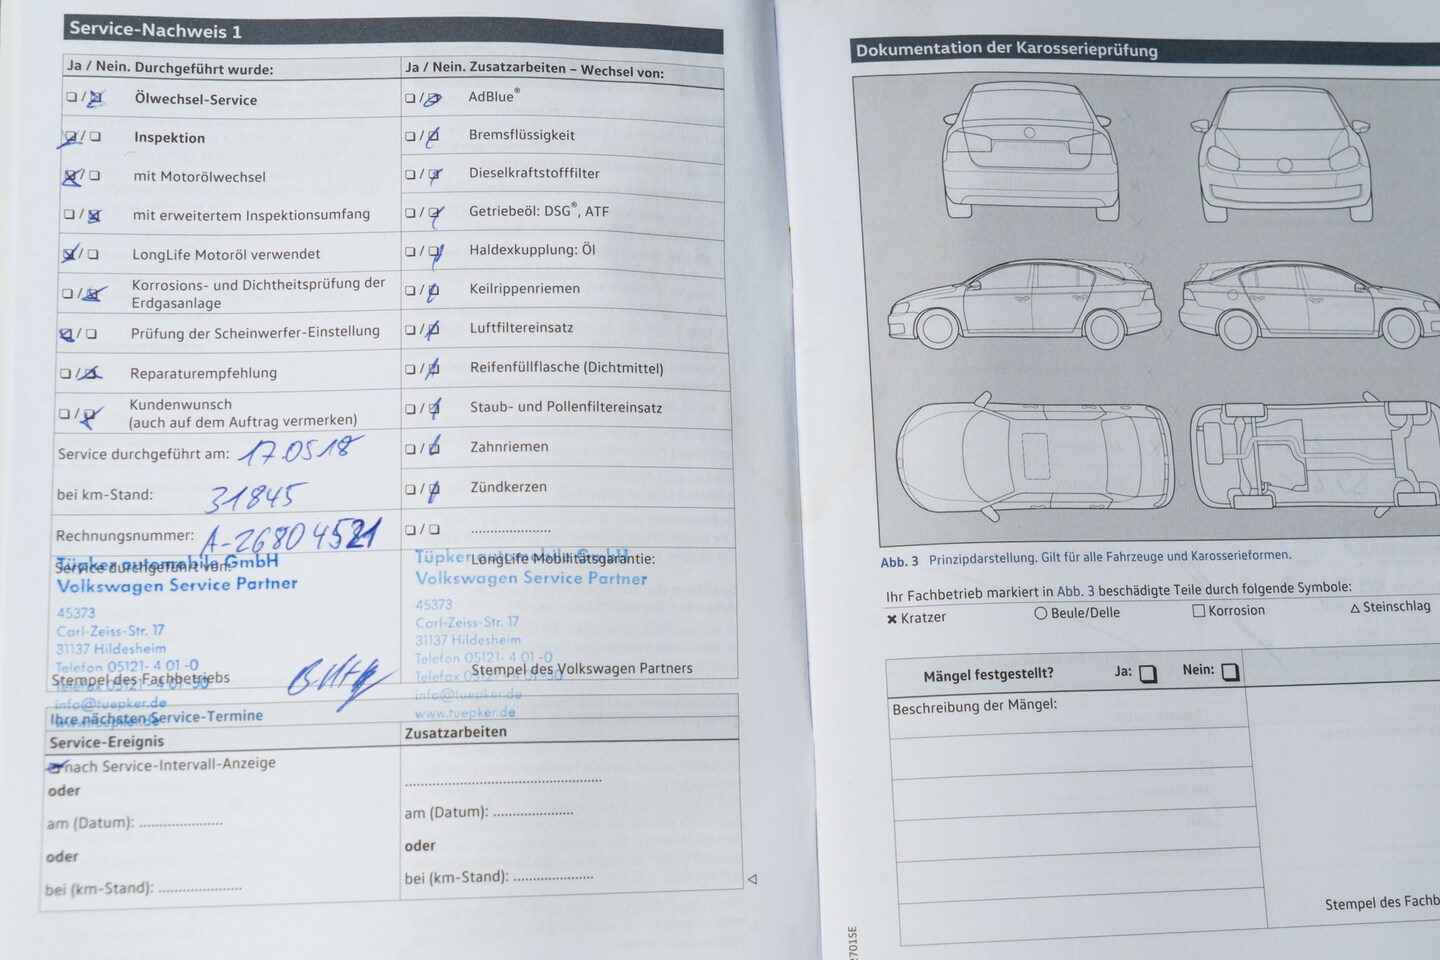 Service-Nachweis 1
Ja / Nein. Durchgeführt wurde:
Ölwechsel-Service
Inspektion
mit Motorölwechsel
mit erweitertem Inspektionsumfang
LongLife Motoröl verwendet
Korrosions- und Dichtheitsprüfung der
Erdgasanlage
Prüfung der Scheinwerfer-Einstellung
Reparaturempfehlung
Kundenwunsch
(auch auf dem Auftrag vermerken)
Service durchgeführt am: 17.05.18
bei km-Stand: 31845
Rechnungsnummer: A-26804521
Service durchgeführt von:
Tüpker automobile GmbH
Volkswagen Service Partner
45373
Carl-Zeiss-Str. 17
31137 Hildesheim
Telefon 05121- 4 01 -0
Telefax 05121- 4 01 -50
info@tuepker.de
www.tuepker.de
Stempel des Fachbetriebs
Ja / Nein. Zusatzarbeiten – Wechsel von:
AdBlue®
Bremsflüssigkeit
Dieselkraftstofffilter
Getriebeöl: DSG®, ATF
Haldexkupplung: Öl
Keilrippenriemen
Luftfiltereinsatz
Reifenfüllflasche (Dichtmittel)
Staub- und Pollenfiltereinsatz
Zahnriemen
Zündkerzen
LongLife Mobilitätsgarantie:
Tüpker automobile GmbH
Volkswagen Service Partner
45373
Carl-Zeiss-Str. 17
31137 Hildesheim
Telefon 05121- 4 01 -0
Telefax 05121- 4 01 -50
info@tuepker.de
www.tuepker.de
Stempel des Volkswagen Partners
Ihre nächsten Service-Termine
Service-Ereignis
nach Service-Intervall-Anzeige
oder
am (Datum):
oder
bei (km-Stand):
Zusatzarbeiten
am (Datum):
oder
bei (km-Stand):
Dokumentation der Karosserieprüfung
Abb. 3 Prinzipdarstellung. Gilt für alle Fahrzeuge und Karosserieformen.
Ihr Fachbetrieb markiert in Abb. 3 beschädigte Teile durch folgende Symbole:
✖ Kratzer ○ Beule/Delle □ Korrosion △ Steinschlag
Mängel festgestellt? Ja: Nein:
Beschreibung der Mängel:
Stempel des Fachb
2701SE